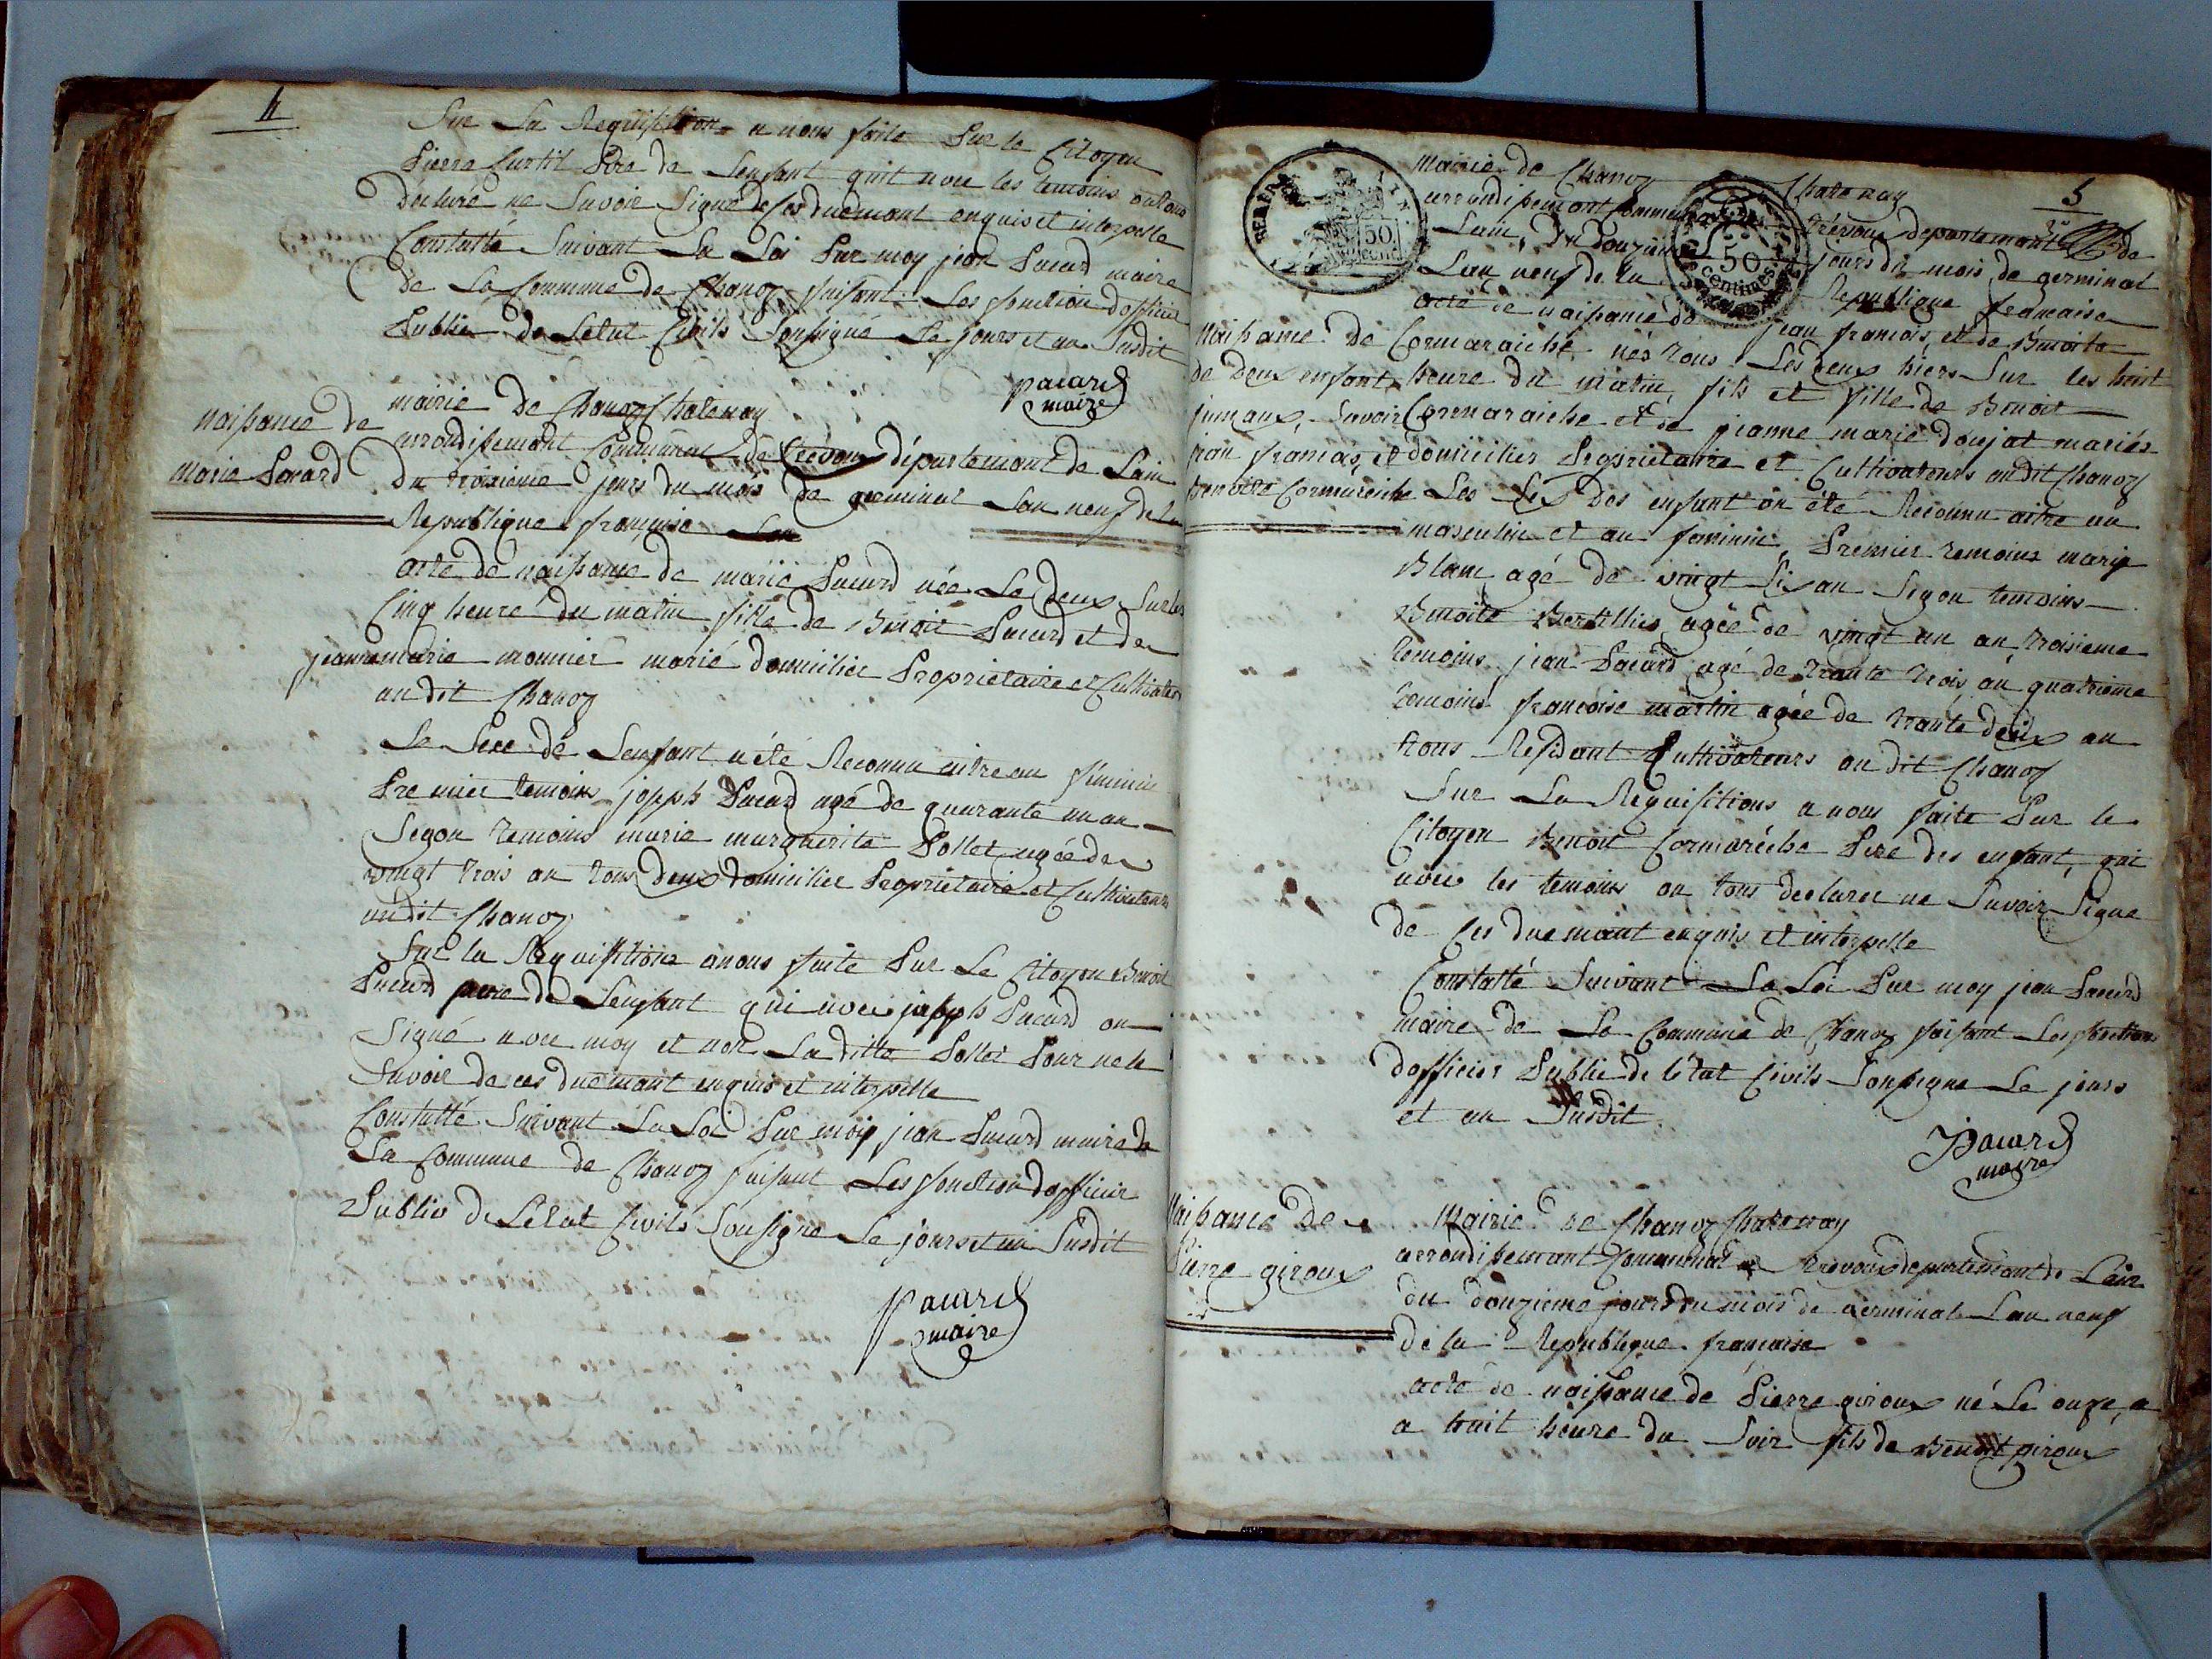 4
Sur La Requisition a nous faite Par le Citoyen
Pierre Curtil Pere de Lenfant quit avec les temoins
declaré ne Savoir Signé de Ces duemant enquis et interpelle
Constatté Suivant La Loi Par moy jean Pacard maire
de La Commune de Chanoz faisant Les fonction dofficier
Public de Letat Civils Sousigné Le jours et an Susdit
pacard
maire
naissance de
marie Pacard
mairie de Chanoz Chatenay
arrondissemant Communal de trevoux département de Lain
du troisieme jours du mois de germinal Lan neuf de La
Republique française
acte de naissance de marie Pacard née Le deux Sur les
Cinq heure du matin fille de Benoit Pacard et de
jeanne marie monnier marié domicilier Proprietaire et Cultivateur
au dit Chanoz
Le Sexe de Lenfant a été Reconnu aitre au feminin
Premier temoins joseph Pacard agé de quarante un an
Segon temoins marie marguerite Pollet agée de
vingt trois an tous deux domicilier Proprietaire et Cultivateurs
au dit Chanoz
Sur la Requisitions a nous faite Par Le Citoyen Benoit
Pacard pere de Lenfant qui avec joseph Pacard on
Signé avec moy et non La ditte Pollet Pour ne le
Savoir de ces duemant enquis et interpelle
Constatté Suivant La Loi Par moy jean Pacard maire de
La Commune de Chanoz faisant Les fonction dofficier
Public de Letat Civils Sousigne Le jours et an Susdit
pacard
maire
5
mairie de Chanoz Chatenay
arrondissemant Communal trévoux departemant de
Lain, Du douzieme jours du mois de germinal
Lan neuf de La Republique francaise
acte de naissance de jean francois et de Benoite
Cormaraiche nés tous Les deux hiers Sur les huit
heure du matin, fils et fille de Benoit
Cormaraiche et de jeanne marie doujat mariés
domicilier Proprietaire et Cultivateurs au dit Chanoz
naissance de
de deux enfant
jumaux, Savoir
jean francois, et
benoite Cormareiche
Les Sex des enfant on été Reconnu aitre au
masculin et au feminin, Premier temoins marie
Blanc agé de vingt Six an Segon temoins
Benoite agée de vingt un an troisieme
temoins jean Pacard agé de trante trois an quatrieme
temoins francoise martin agée de trante deux an
tous Residant Cultivateurs au dit Chanoz
Sur La Requisitions a nous faite Par le
Citoyen Benoit Cormaréche Pere des enfant, qui
avec les temoins on tous declarer ne Savoir Signe
de Ces duemant enquis et interpelle
Constatté Suivant La Loi Par moy jean Pacard
maire de La Commune de Chanoz faisant Les fonction
dofficier Public de l'état Civils Sousigne Le jours
et an Susdit
Pacard
maire
Naissance de
Pierre giroux
Mairie de Chanoz Chatenay
arrondissemant Communal de trevoux departemant de Lain
du douzieme jours du mois de germinal Lan neuf
de la Republique française
acte de naissance de Pierre giroux né Le onze, a
a huit heure du Soir fils de Benoit giroux
50
centimes